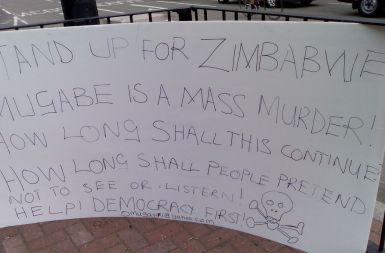 TAND UP FOR ZIMBABWE
MUGABE IS A MASS MURDER!
HOW LONG SHALL THIS CONTINUE
HOW LONG SHALL PEOPLE PRETEND
NOT TO SEE OR LISTERN!
HELP! DEMOCRACY FIRST!